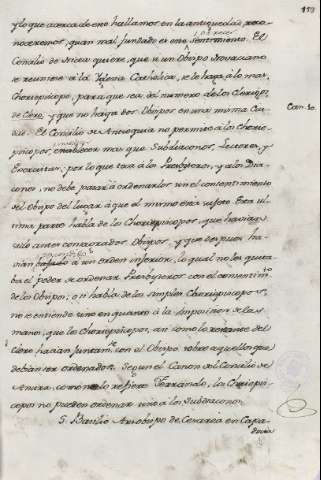 113
y lo que acerca de eso hallamos en la antiguedad, reco-
noceremos, quan mal fundado es este sentimiento. El
Concilio de Nicea quiere, que si un Obispo Novaciano
se reuniere a la Iglesia Catholica, se le haga à lo mas,
Chorepiscopo, para que sea del numero de los Clerigos,
de Clero, y que no haya dos Obispos en una misma Ciu-
Can. 10.
dad. El Concilio de Antioquia no permite à los Chore-
piscopos, establecer mas que Subdiaconos, Lectores, y
Exorcistas, por lo que toca à los Presbyteros, y à los Dia-
conos, no debe pasar à ordenarlos sin el consentimiento
del Obispo del lugar, à que el mismo está sujeto. Esta ul-
tima parte habla de los Chorepiscopos, que havian
sido antes consagrados Obispos, y que despues ha-
vian bajado à un orden inferior, lo qual no les quita-
ba el poder de ordenar Presbyteros con el consentim.to
de los Obispos; ò si habla de los simples Chorepiscopos,
no se entiende sino en quanto à la imposicion de las
manos, que los Chorepiscopos, asi como lo restante del
Clero hacian juntam.te con el Obispo sobre aquellos que
debian ser ordenados. Segun el Canon del Concilio de
Ancira, como lo refiere Ferrando, los Chorepis-
copos no pueden ordenar sino à los Subdiaconos.
S. Basilio Arzobispo de Cesarea en Capa-
docia